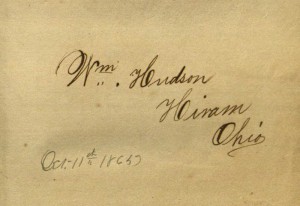 Wm. Hudson
Hiram
Ohio
Oct. 11th 1865